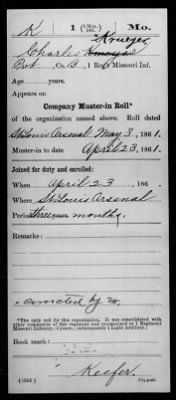 K | 1 (3 Mos. 1861.) | Mo.
Krueger
Charles Kmoyer
Pvt, Co. B, 1 Reg't Missouri Inf.
Age years.
Appears on
Company Muster-in Roll*
of the organization named above. Roll dated
St Louis Arsenal May 3, 1861.
Muster-in to date April 23, 1861.
Joined for duty and enrolled:
When April 23, 186 .
Where St Louis Arsenal
Period three years months.
Remarks:
* This only roll for this organization. It was consolidated with
other companies of this regiment and reorganized as 1 Regiment
Missouri Infantry, (3 years), subsequently 1 Light Artillery.
Book mark:
Keefer
Copyist.